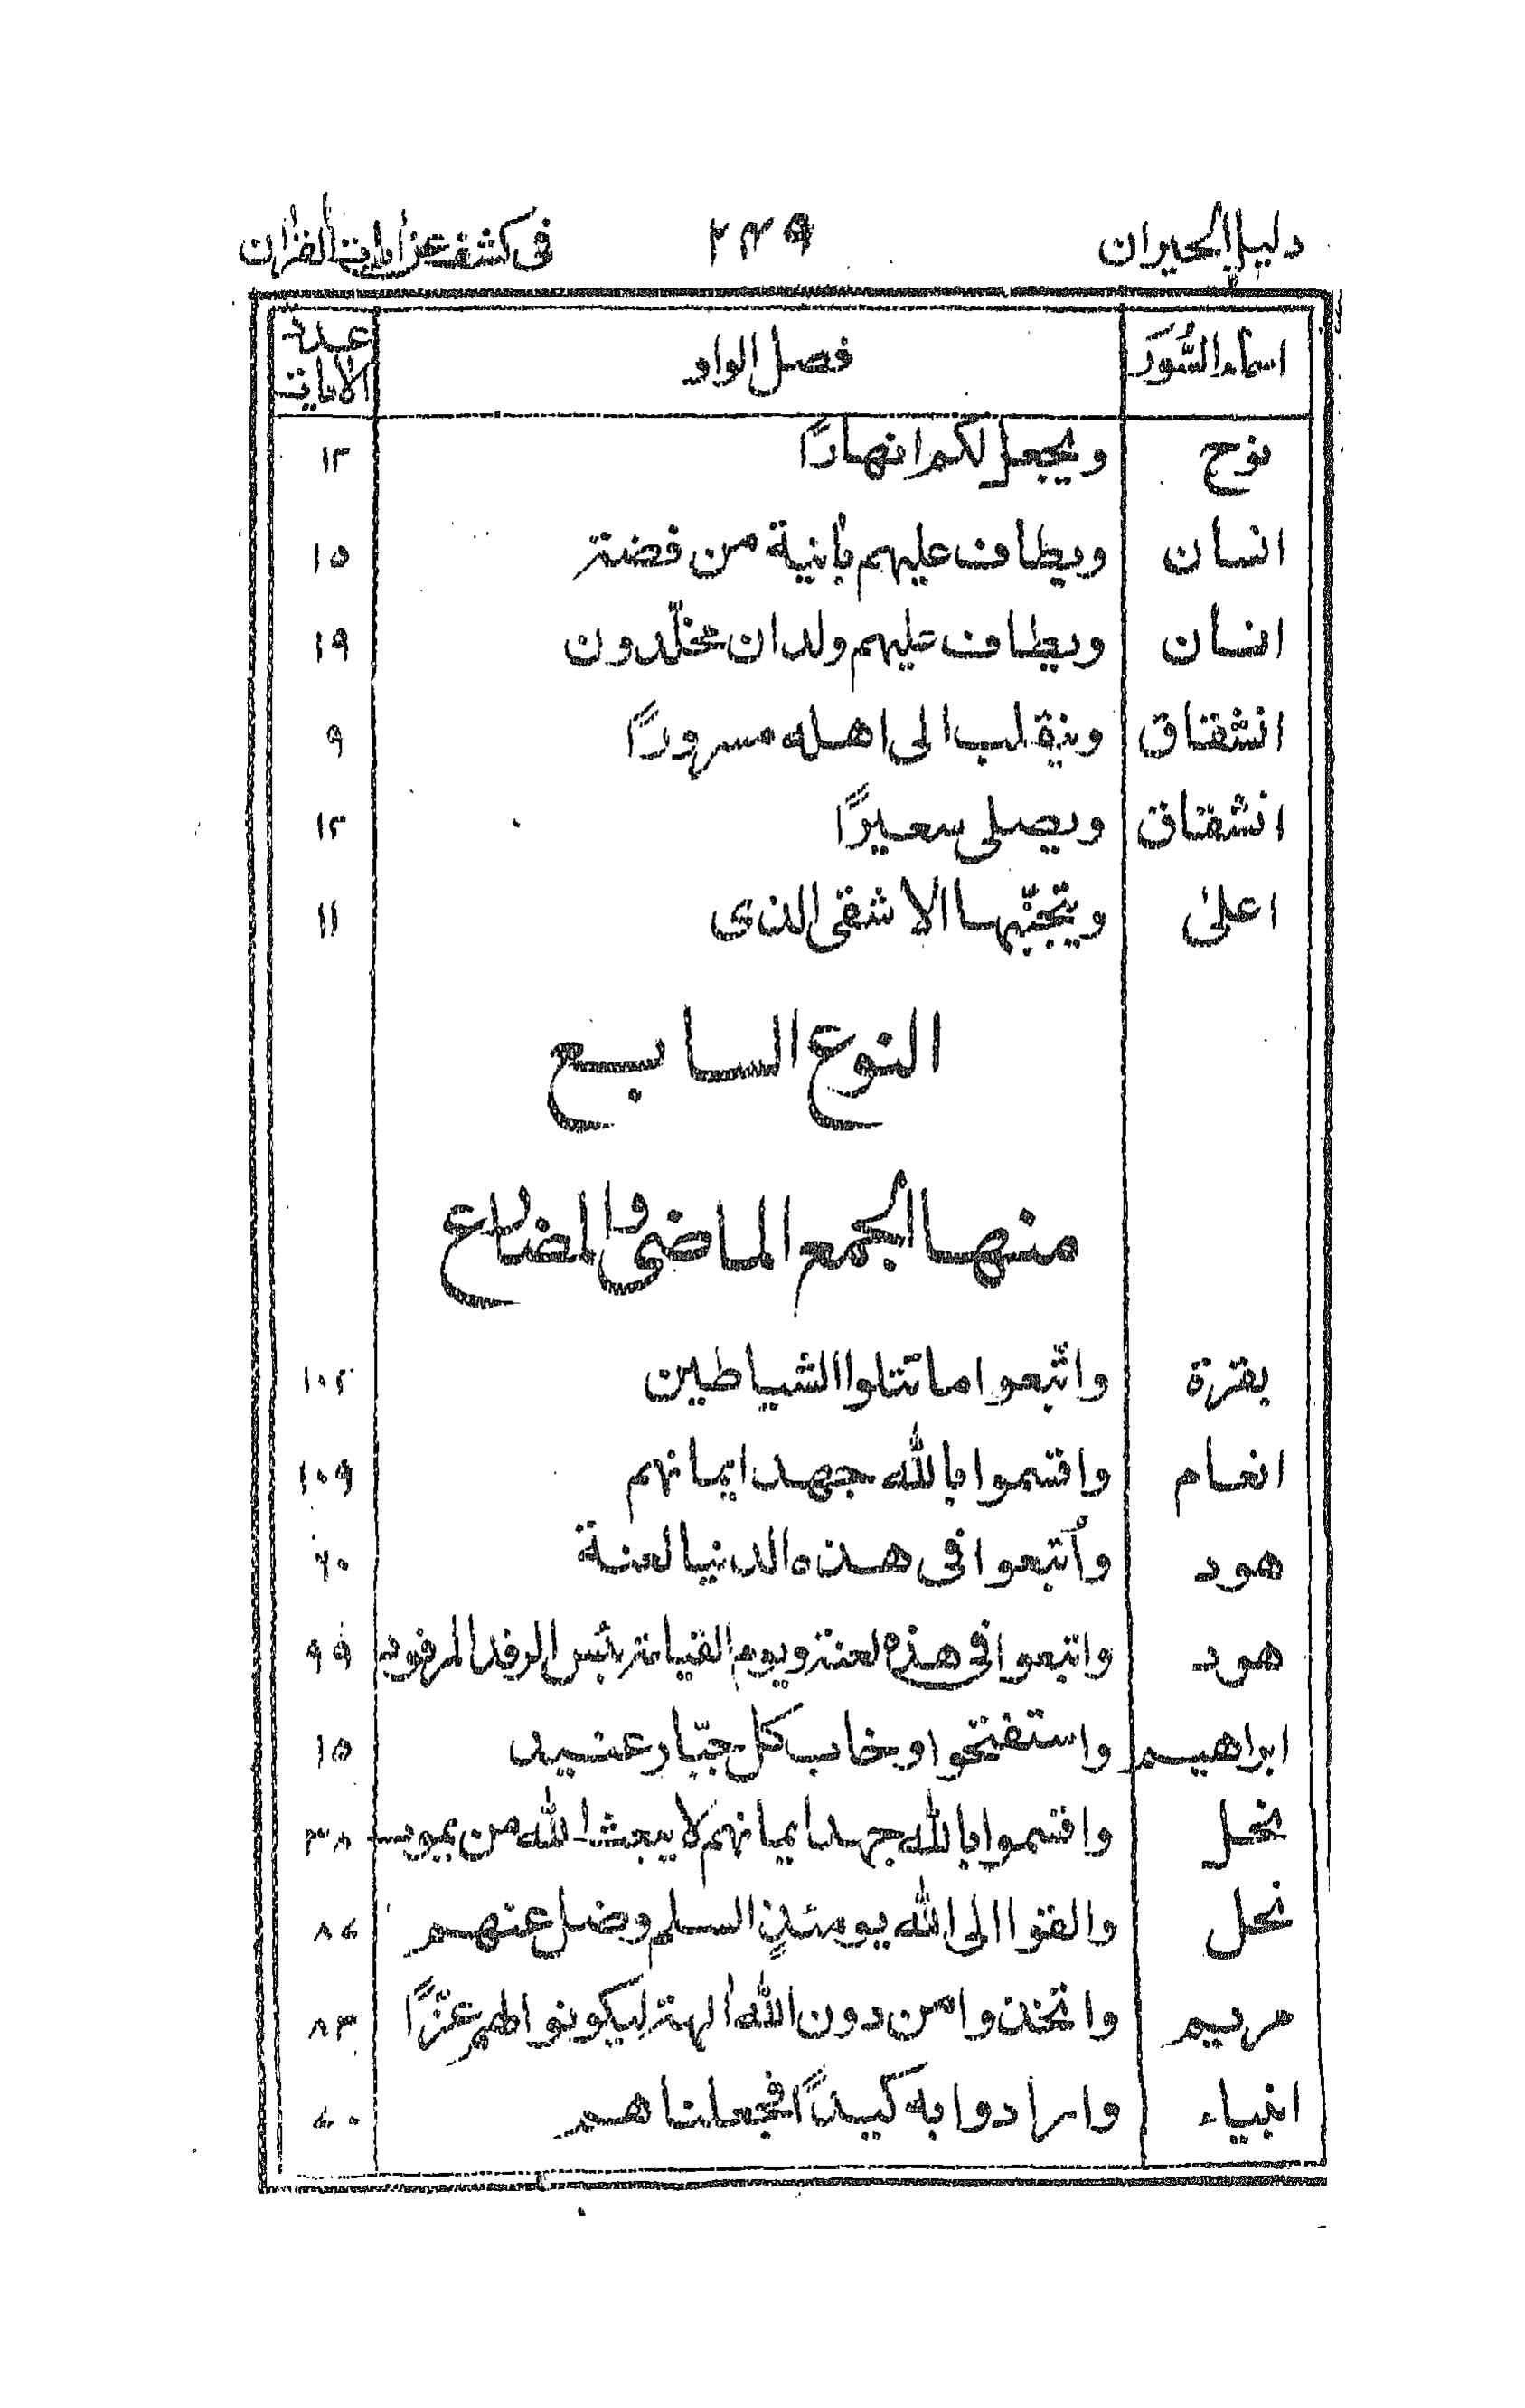 دليل الحيران ٢٣٩ في كشف عن أيات القرأن
اسماء السُّوَر فصل الواو عدد الأيات
نوح ويجعل لكم انهارًا ١٢
انسان ويطاف عليهم بأنية من فضة ١٥
انسان ويطاف عليهم ولدان مخلّدون ١٩
انشقاق وينقلب الى اهله مسرورًا ٩
انشقاق ويصلى سعيرًا ١٢
اعلىٰ ويتجنّبها الاشقى الذى ١١
النوع السابع
منها الجمع الماضى والمضارع
بقرة واتّبعوا ما تتلوا الشياطين ١٠٢
انعام واقسموا بالله جهد ايمانهم ١٠٩
هود وأتبعوا فى هذه الدنيا لعنة ٦٠
هود واتبعوا فى هذه لعنة ويوم القيامة بئس الرفد المرفود ٩٩
ابراهيم واستفتحوا وخاب كل جبّار عنيد ١٥
نحل واقسموا بالله جهد ايمانهم لا يبعث الله من يموت ٣٨
نحل والقوا الى الله يومئذٍ السلم وضل عنهم ٨٧
مريم واتخذوا من دون الله ألهة ليكونوا لهم عزًّا ٨٣
انبياء وارادوا به كيدًا فجعلناهم ٧٠